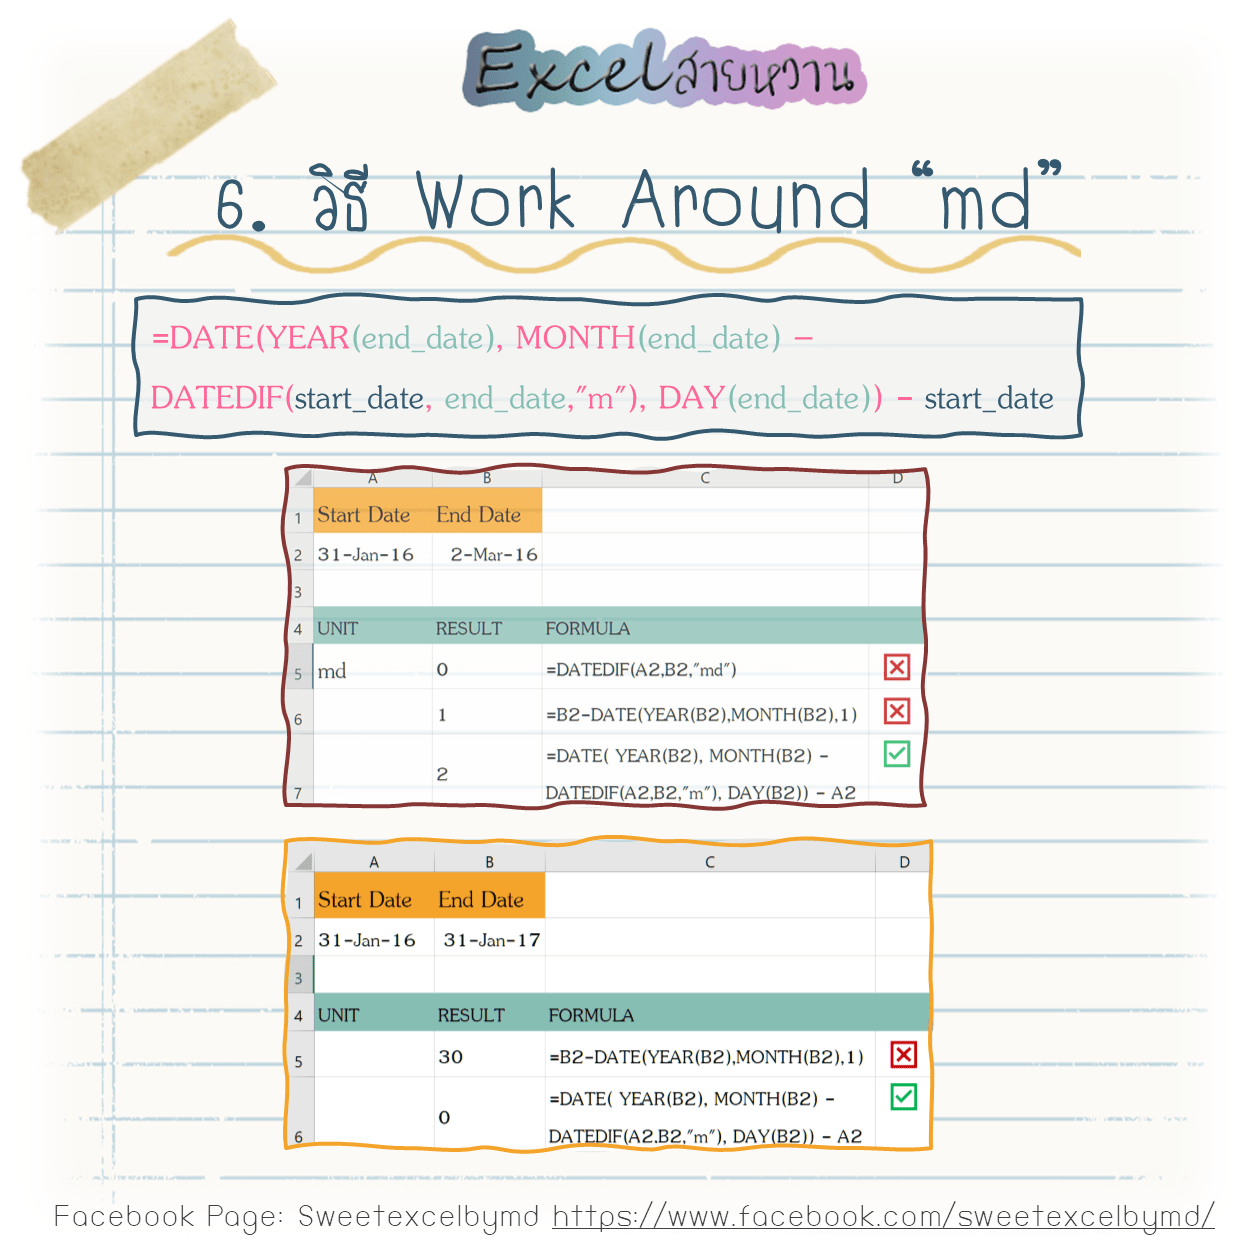 Excelสายหวาน
6. วิธี Work Around “md”
=DATE(YEAR(end_date), MONTH(end_date) –
DATEDIF(start_date, end_date,"m"), DAY(end_date)) - start_date
A B C D
1 Start Date End Date
2 31-Jan-16 2-Mar-16
3
4 UNIT RESULT FORMULA
5 md 0 =DATEDIF(A2,B2,"md")
6 1 =B2-DATE(YEAR(B2),MONTH(B2),1)
=DATE( YEAR(B2), MONTH(B2) -
7 2 DATEDIF(A2,B2,"m"), DAY(B2)) - A2
A B C D
1 Start Date End Date
2 31-Jan-16 31-Jan-17
3
4 UNIT RESULT FORMULA
5 30 =B2-DATE(YEAR(B2),MONTH(B2),1)
=DATE( YEAR(B2), MONTH(B2) -
6 0 DATEDIF(A2,B2,"m"), DAY(B2)) - A2
Facebook Page: Sweetexcelbymd https://www.facebook.com/sweetexcelbymd/